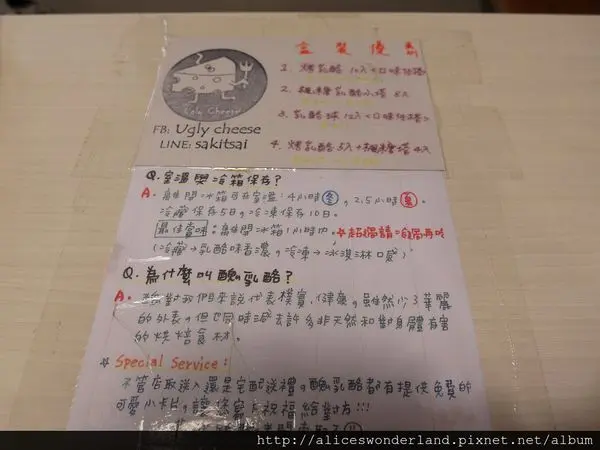 盒裝優惠
1. 烤乳酪 12入(口味任搭)
2. 楓糖乳酪小塔 8入
3. 乳酪球 12入(口味任搭)
4. 烤乳酪 5入+楓糖塔 4入
Ugly Cheese
FB: Ugly cheese
LINE: sakitsai
Q. 室溫與冷箱保存?
A. 離開冰箱可在室溫:4小時 冬, 2.5小時 夏。
冷藏保存5日,冷凍保存10日。
最佳賞味:離開冰箱1小時內。
(冷藏→乳酪味香濃,冷凍→冰淇淋口感)
Q. 為什麼叫醜乳酪?
A. 醜對我們來說代表樸實、健康。雖然少了華麗
的外表,但同時減去許多非天然和對身體有害
的烘焙食材。
☆ Special Service:
不管店取送人還是宅配送禮,醜乳酪都有提供免費的
可愛小卡片,讓你寫上祝福給對方!!!
http://aliceswonderland.pixnet.net/album